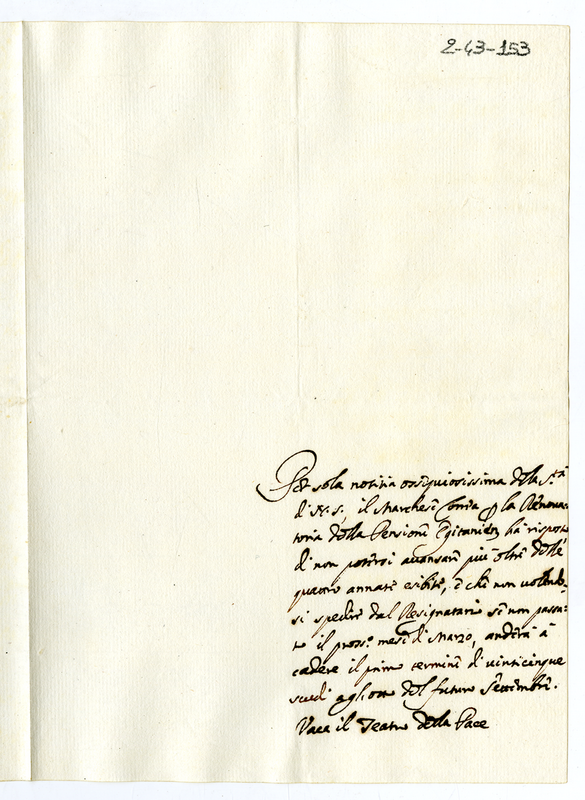 2-43-153
Per sola notitia ossequiosissima della S.tà
di N. S. il Marchese la Renova-
toria della Pensione ha risposto
di non potersi avansare più oltre delle
quatro annate esibite, e che non volendo-
si spedire dal Resignatario se non passa-
to il pross.o mese di Marzo, anderà à
cadere il primo termine di vinticinque
scudi agli otto del futuro Settembre.
Vaca il Teatro della Pace